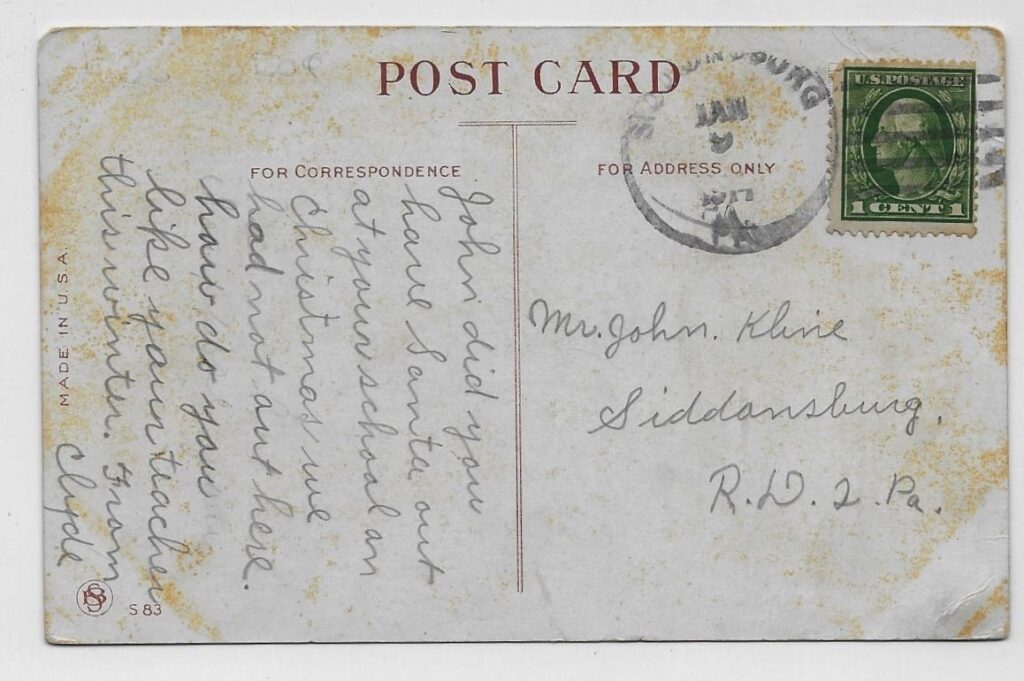 POST CARD
FOR CORRESPONDENCE
FOR ADDRESS ONLY
U.S. POSTAGE
1 CENT 1
JAN
9
PA.
John did you
have Santa out
at your school on
Christmas we
had not out here.
how do you
like your teacher
this winter. From
Clyde
Mr. John. Kline
Siddonsburg,
R.D. 2. Pa.
MADE IN U.S.A.
S 83